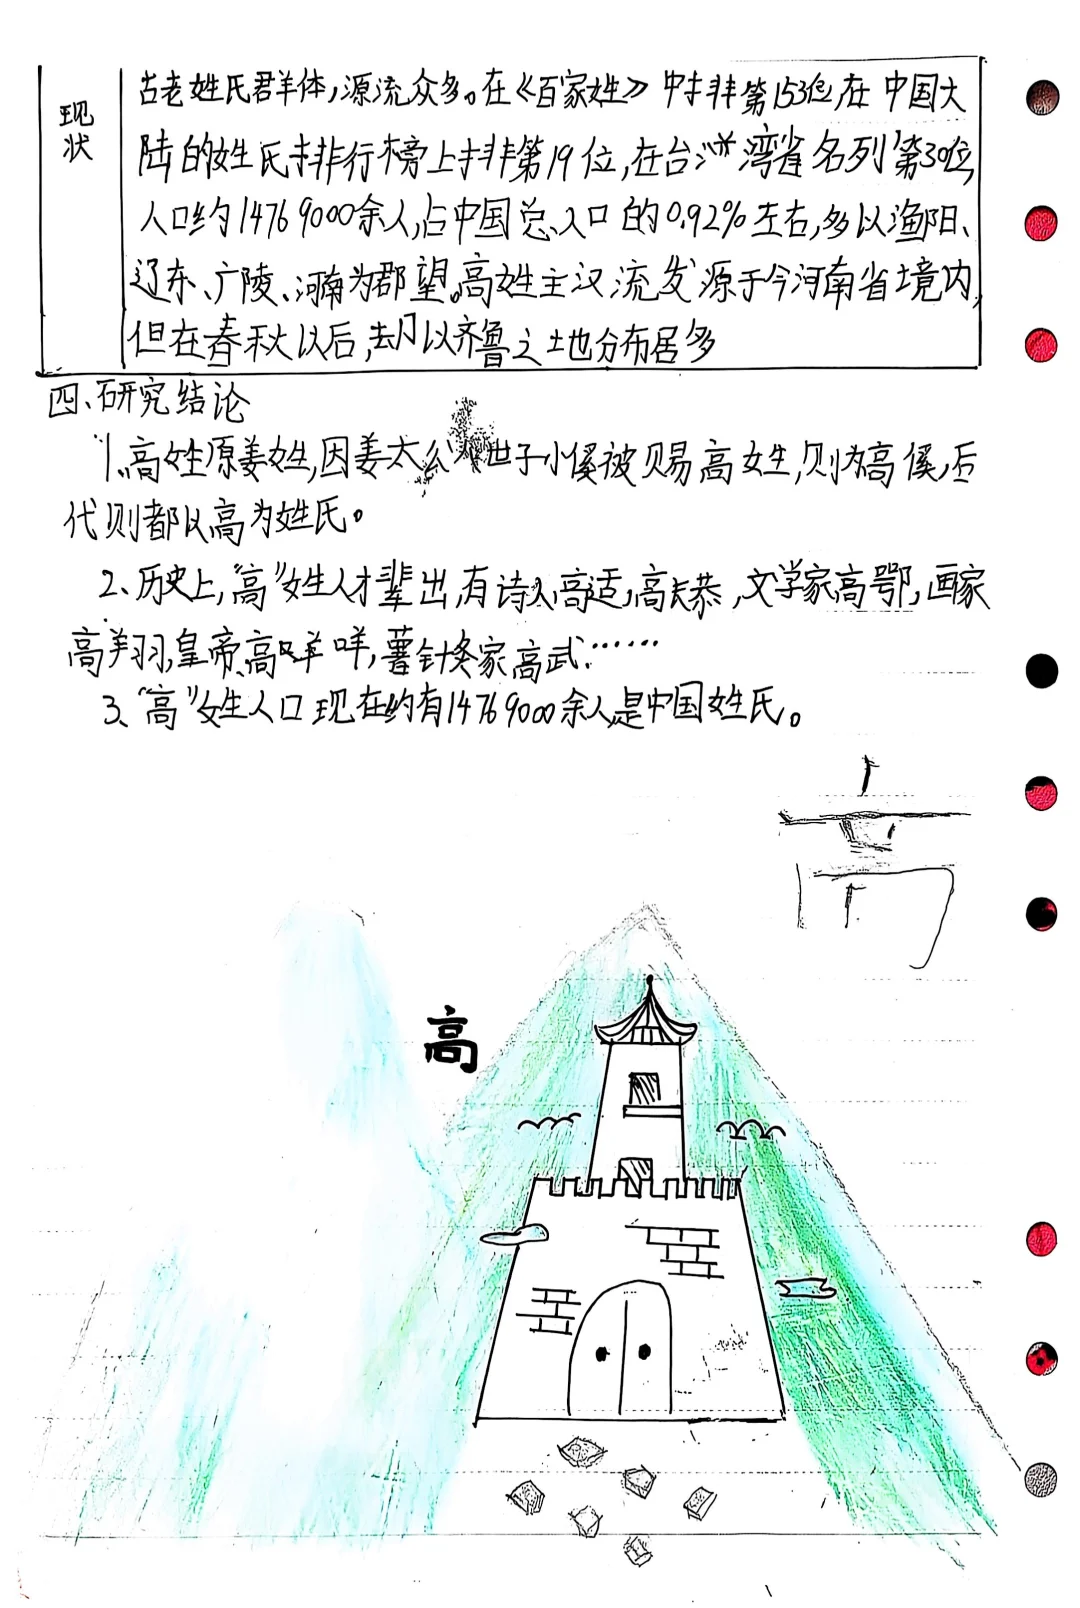 现状
古老姓氏群体,源流众多。在《百家姓》中排第153位,在中国大
陆的姓氏排行榜上排第19位,在台湾省名列第30位,
人口约14769000余人,占中国总人口的0.92%左右,多以渔阳、
辽东、广陵、河南为郡望。高姓主汉流发源于今河南省境内,
但在春秋以后,却以齐鲁之土地分布居多
四、研究结论
1、高姓原姜姓,因姜太公 世子小傒被赐高姓,则为高傒,后
代则都以高为姓氏。
2、历史上,“高”姓人才辈出,有诗人高适,高长恭,文学家高鄂,画家
高翔,皇帝高洋,高武……
3、“高”姓人口现在约有14769000余人,是中国姓氏。
高